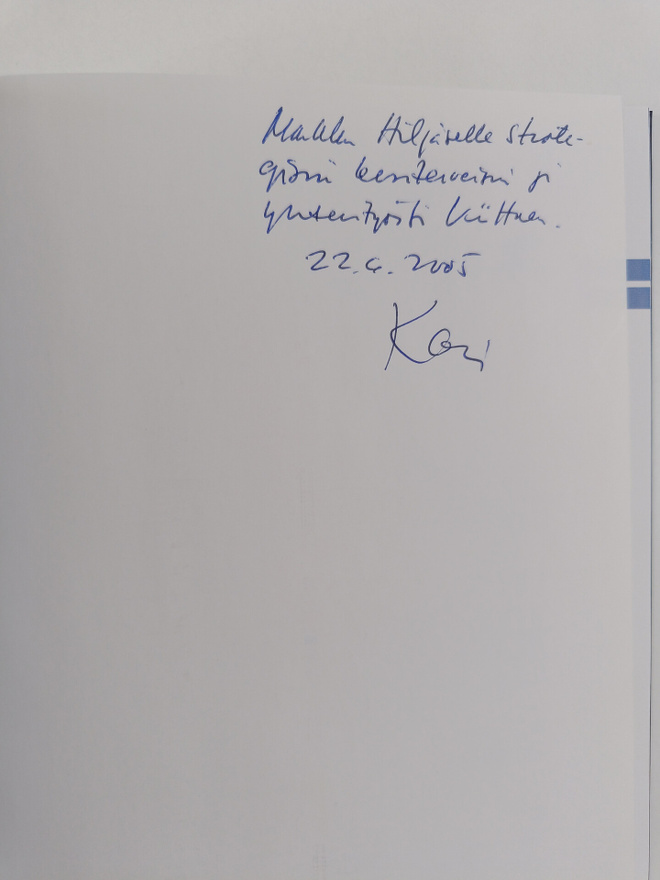 Markku Hiljaselle Strate-
gisin kesäterveisin ja
yhteistyöstä kiittäen.
22.6.2005
Kari